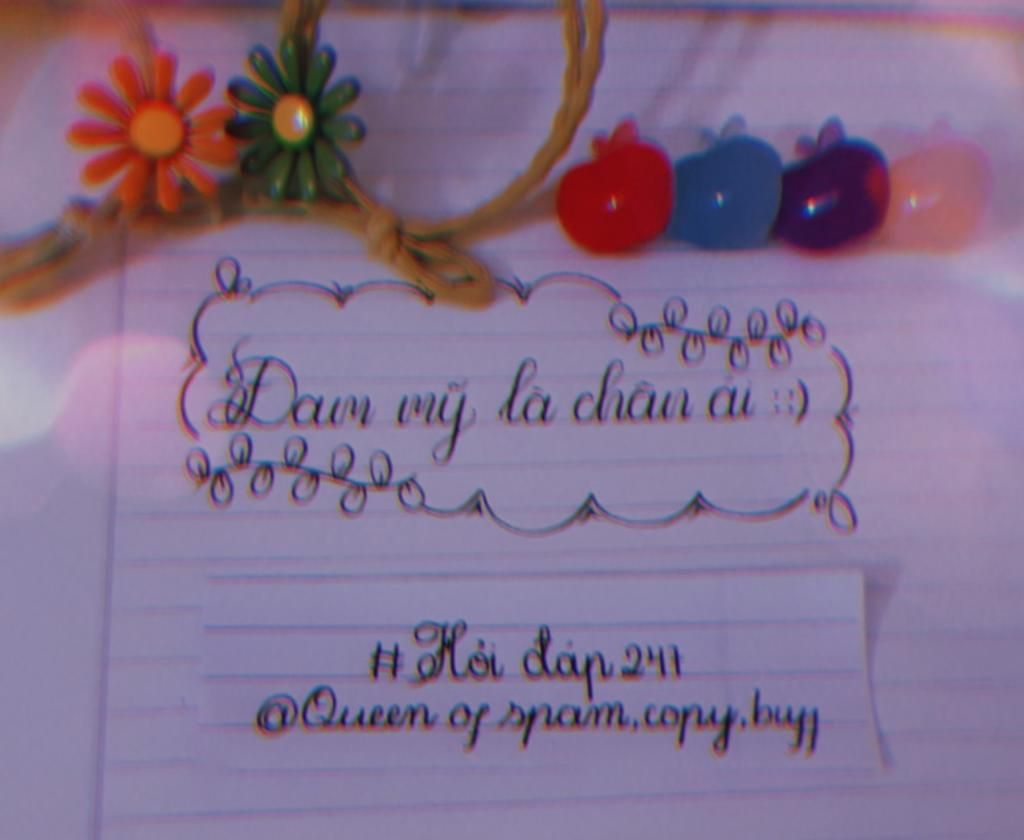 Đam mỹ là chân ái ::)
#Hỏi đáp 247
@Queen of spam,copy,buff